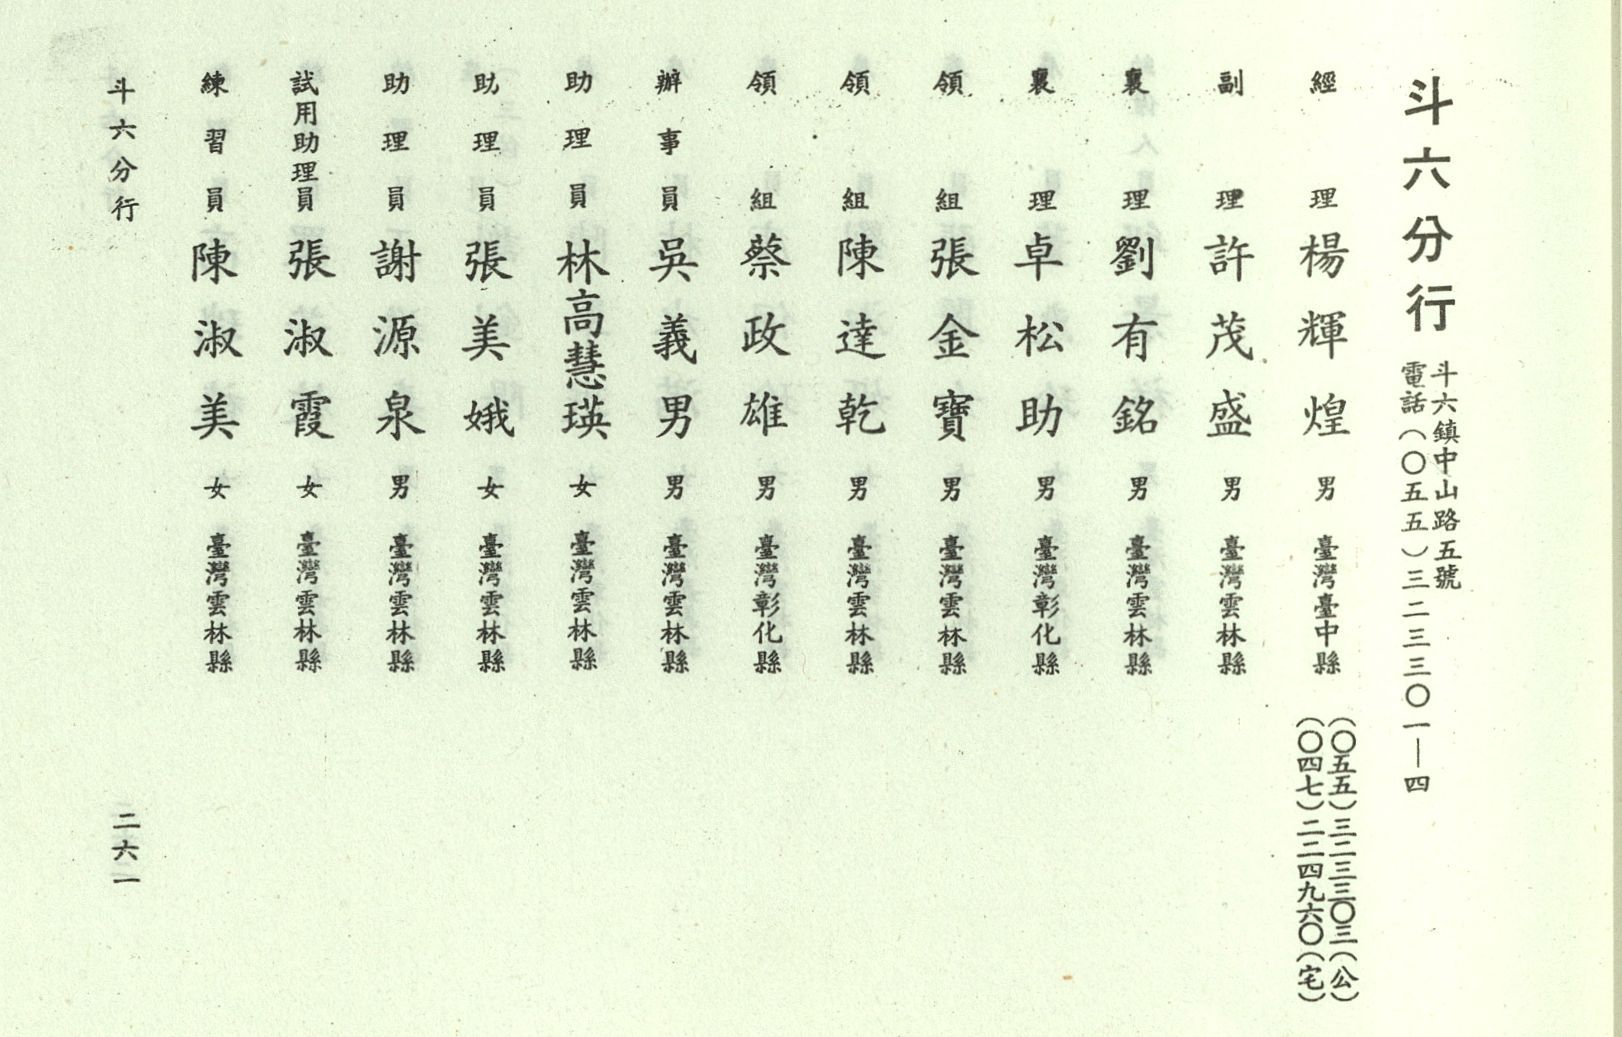 斗六分行
斗六鎮中山路五號
電話（〇五五）三二三三〇一—四
經理 楊輝煌 男 臺灣臺中縣 （〇五五）三二三三〇三（公）
（〇四七）二二四九六〇（宅）
副理 許茂盛 男 臺灣雲林縣
襄理 劉有銘 男 臺灣雲林縣
襄理 卓松助 男 臺灣彰化縣
領組 張金寶 男 臺灣雲林縣
領組 陳達乾 男 臺灣雲林縣
領組 蔡政雄 男 臺灣彰化縣
辦事員 吳義男 男 臺灣雲林縣
助理員 林高慧瑛 女 臺灣雲林縣
助理員 張美娥 女 臺灣雲林縣
助理員 謝源泉 男 臺灣雲林縣
試用助理員 張淑霞 女 臺灣雲林縣
練習員 陳淑美 女 臺灣雲林縣
斗六分行
二六一